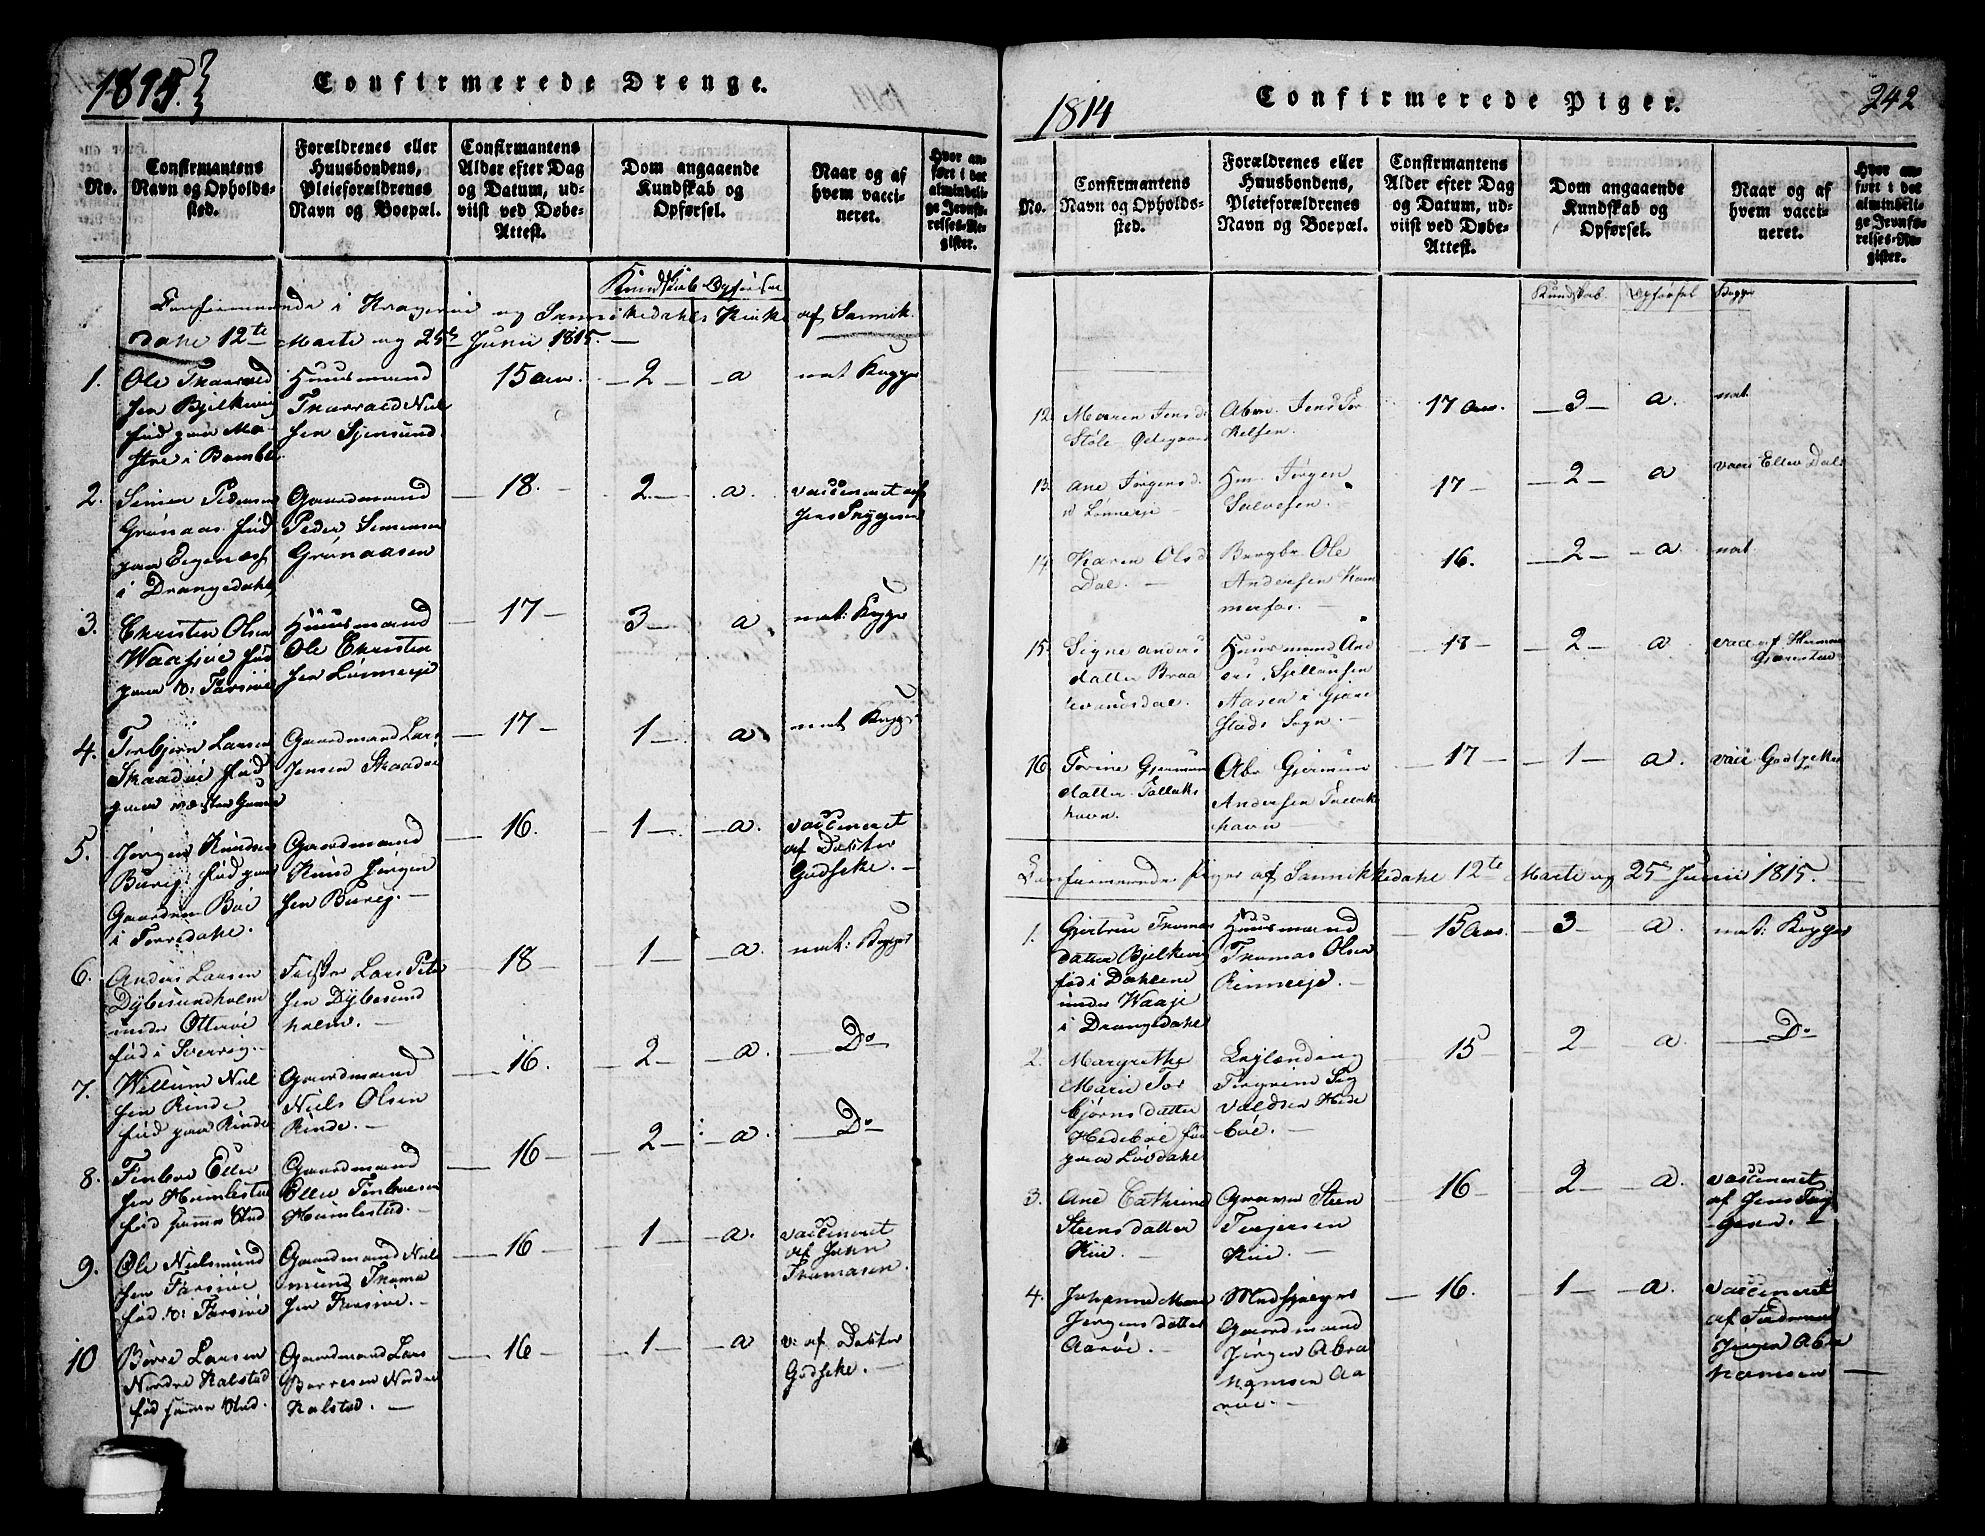 1815.
Confirmerede Drenge.
No.
Confirmantens Navn og Opholds-sted.
Forældrenes eller Huusbondens, Pleieforældrenes Navn og Boepæl.
Confirmantens Alder efter Dag og Datum, ud-viist ved Døbe-Attest.
Dom angaaende Kundskab og Opførsel.
Naar og af hvem vacci-neret.
Hvor an-ført i det almindeli-ge Jevnfø-relses-Re-gister.
Kundskab Opførsel
Confirmerede i Kragerøe og Sannikedahls Kirke af Sannik-
dahl 12te Marts og 25de Junii 1815.
1.
Ole Thorvald
sen Bjelkevig
fød paa
i Bamble
Huusmand
Thorvald Niel
sen
15 aar.
2
a
nat Kopper
2.
Simen Pedersen
Grønaas fød
paa
i Drangedahl
Gaardmand
Peder Simensen
Grønaasen
18.
2
a.
vaccineret af
Jens
3.
Christen Olsen
Waasøe fød
paa v: Farsiøe
Huusmand
Ole Christen
sen Lønneeje
17
3
a.
nat: Kopper
4.
Torbjørn Larsen
fød
paa
Gaardmand Lars
Jensen
17
1
a.
nat Kopp
5.
Jørgen Knudsen
Bureg. fød paa
Gaarden Böe
i Torredahl.
Gaardmand
Knud Jørgen
sen Bureg.
16.
1
a.
vaccineret
af Docter
Gødseke.
6.
Anders Larsen
Dybesundholm
under Otterøe
fød i Sverrig.
Lars Peter
sen Dybesund
holm.
18
1
a.
nat: Kopper
7.
Willum Niel
sen Rinde
fød paa Rinde
Gaardmand
Niels Olsen
Rinde.
16.
2
a.
Do
8.
Finboe Ellev
sen Humlestad
fød samme Sted
Gaardmand
Ellev Finboesen
Humlestad.
16
2
a.
Do
9.
Ole Nielsmund
sen Farsiøe
fød v: Farsiøe
Gaardmand Niel
mund Thoma
sen Farsiøe.
16
1
a.
vaccineret
af John
Thomasen.
10
Børre Larsen
Nordre Kalstad
fød samme Sted.
Gaardmand Lars
Borresen Nordre
Kalstad.
16
1
a
v: af Docter
Gødseke.
1814
Confirmerede Piger.
242
No.
Confirmantens Navn og Opholds-sted.
Forældrenes eller Huusbondens, Pleieforældrenes Navn og Boepæl.
Confirmantens Alder efter Dag og Datum, ud-viist ved Døbe-Attest.
Dom angaaende Kundskab og Opførsel.
Naar og af hvem vacci-neret.
Hvor an-ført i det almindeli-ge Jevnfø-relses-Re-gister.
Kundskab Opførsel Kopper
12.
Maren Jens d.
Støle Ødegaard
Abr. Jens Tor
kelsen.
17 Aar.
3
a.
nat.
13.
Ane Jørgens d.
Lønneeje
Hm. Jørgen
Salvesen.
17
2
a
vacc Ellev Dals
14.
Karen Ols d
Dal.
Bergbr. Ole
Andersen Kam
merfos.
16.
2
a.
nat
15.
Signe Anders
datter Braa
vandsdal.
Huusmand And
ers
Aasen i Gjere
stads Sogn.
18
2
a
vacc af
Gjerrestad
16.
Torine Gjermun
datter Tallaks
havn.
Abr Gjermun
Andersen Tallaks
havn
17
1
a.
vacc Godtzeke
Confirmerede Piger af Sannikkedahl 12te Marts og 25de Junii 1815.
1.
Gjertrue Thomas
datter Bjelkevig
fød i Dahlene
under Waaje
i Drangedahl
Huusmand
Thomas Olsen
Rinneeje.
15 Aar.
3
a.
nat: Kopper
2.
Margrethe
Marie Tor
bjørns datter
Hedeböe fød
paa Løvdahl
Torgrim
valdsen Hede
böe.
15
2
a.
Do
3.
Ane Cathrine
Steens datter
Kiie.
Steen
Terjersen
Kiie.
16
2
a.
vaccineret
af Jens
4.
Johanne Marie
Jørgens datter
Aarøe.
Gaardmand
Jørgen Abra
hamsen Aa
røe.
16.
1
a.
vaccineret
af
Jørgen Abra
hamsen